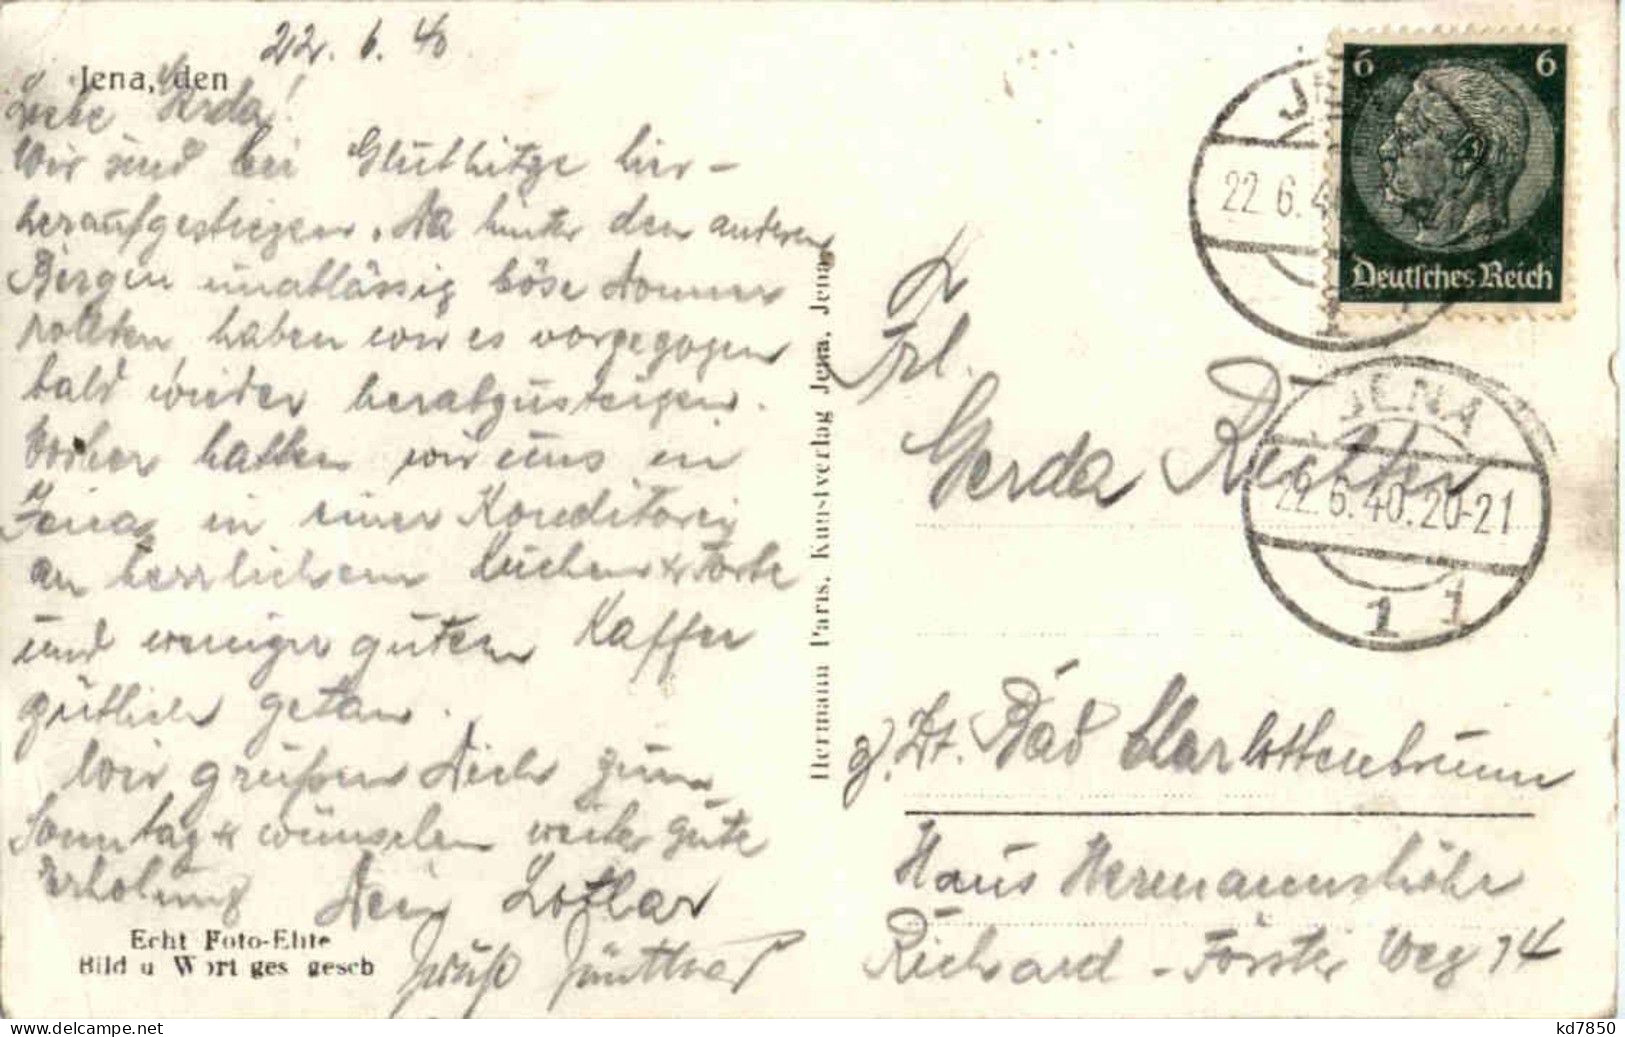 22. 6. 40
Jena, den
Liebe Gerda!
Wir sind bei Gluthitze hier-
heraufgestiegen. Da hinter den anderen
Bergen unablässig böse Donner
rollten haben wir es vorgezogen
bald wieder herabzusteigen.
Vorher hatten wir uns in
Jena, in einer Konditorei
an herrlichem Kuchen & Torte
und weniger gutem Kaffee
gütlich getan.
Wir grüßen Dich zum
Sonntag & wünschen weiter gute
Erholung Dein Lothar
Gruß
Echt Foto-Elite
Bild u Wort ges gesch
Hermann Paris, Kunstverlag Jena, Jena,
6 6
Deutsches Reich
JENA
22.6.4
1
JENA
22.6.40.20-21
1 1
Frl.
Gerda Richter
z. Zt. Bad Charlottenbrunn
Haus Hermannshöhe
Richard-Förster Weg 14
kd7850